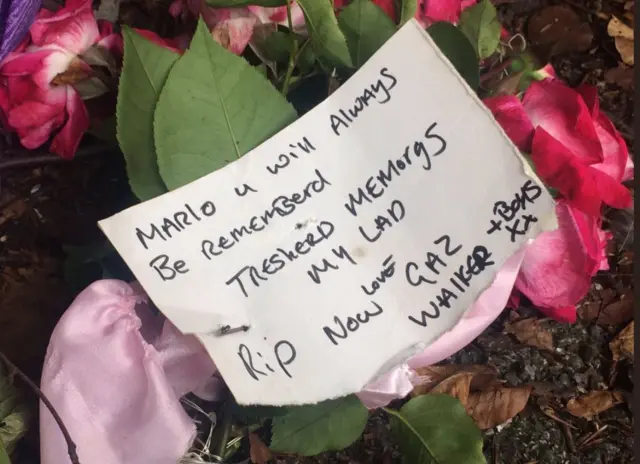 MARIO u will Always
Be REMEMBERD
TRESHERD MEMORYS
MY LAD
RIP NOW LOVE GAZ
WALKER + BOYS
XX